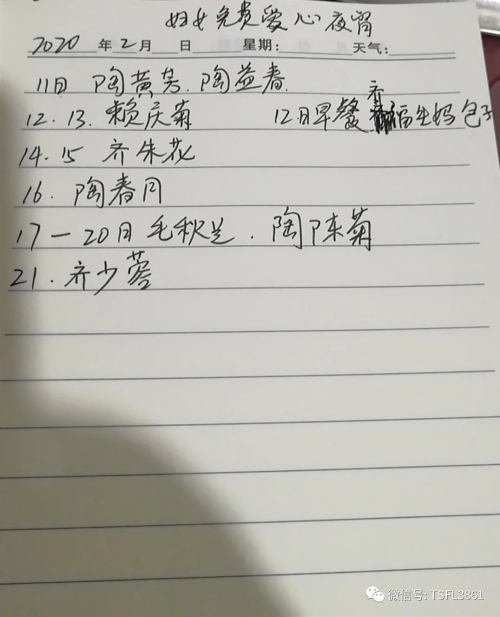 妇女免费爱心夜宵
2020 年 2 月 日 星期: 天气:
11日 陶黄芳. 陶益春.
12. 13. 赖庆菊 12日早餐 齐福生妈包子
14. 15 齐朱花
16. 陶春月
17 — 20日 毛秋兰. 陶陈菊
21. 齐少蓉
微信号: TSFL3861